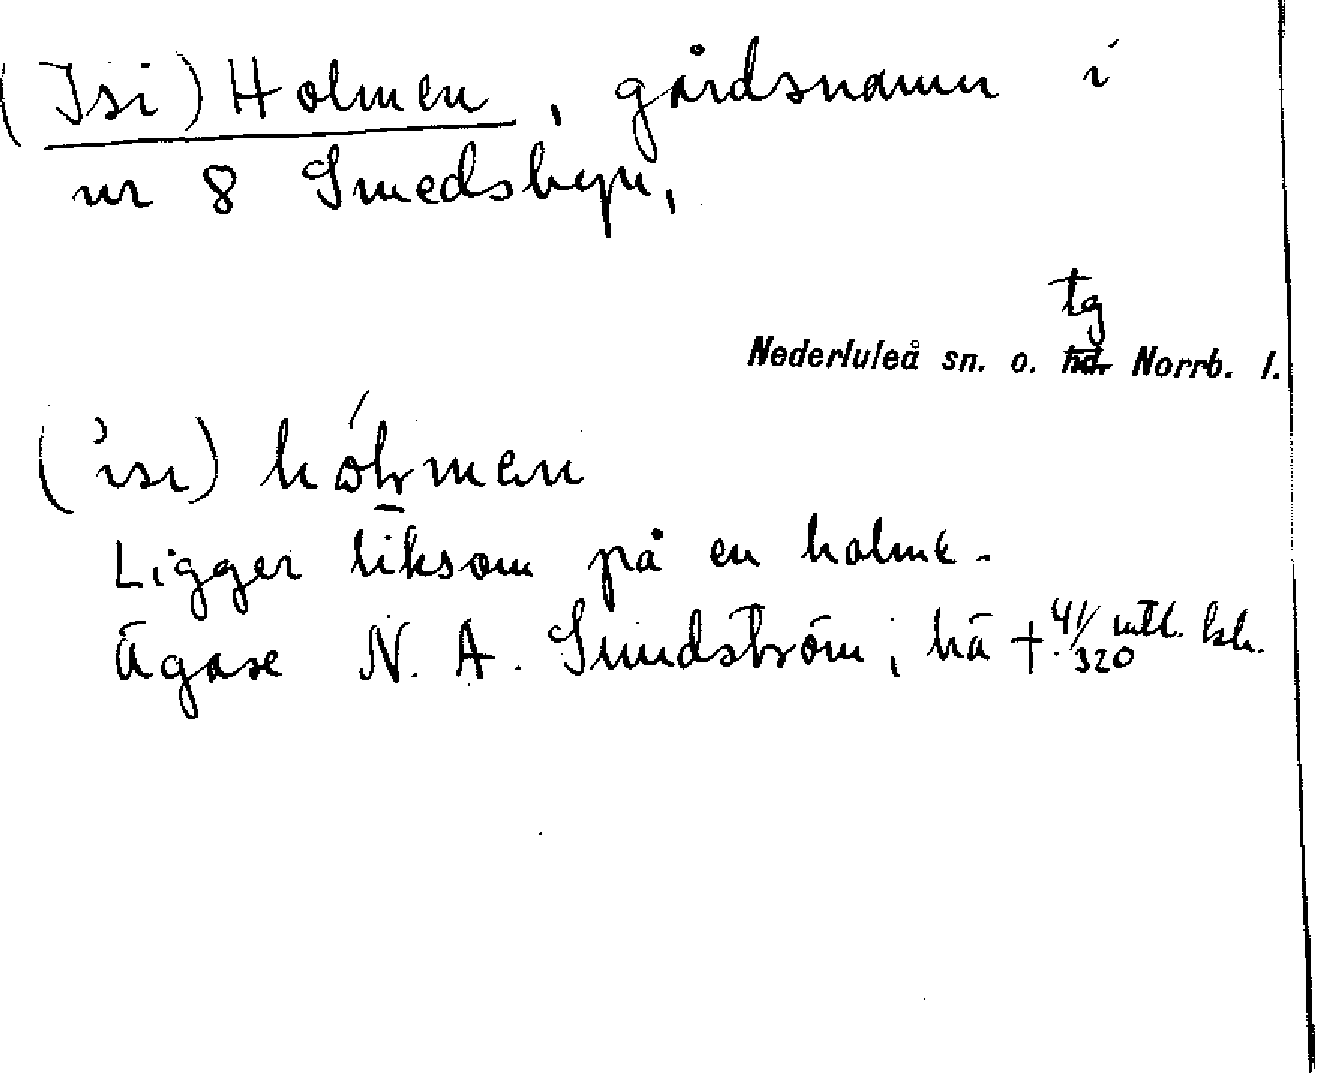 (Isi) Holmen, gårdsnamn i
nr 8 Smedsbyn,
tg
Nederluleå sn. o. hd. Norrb. l.
( isi)
Ligger liksom på en holme.
Ägare N. A. Sundström; hä + 41/320 mtl. ksk.